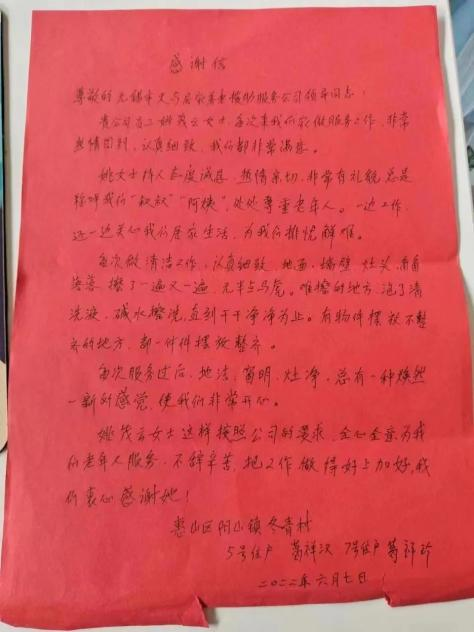 感谢信
尊敬的无锡市久与居家养老援助服务公司领导同志！
贵公司员工姚茂云女士，每次来我们家做服务工作，非常
热情周到，认真细致，我们都非常满意。
姚女士待人态度诚恳，热情亲切，非常有礼貌，总是
称呼我们“叔叔”“阿姨”，处处尊重老年人。一边工作，
还一边关心我们居家生活，为我们排忧解难。
每次做清洁工作，认真细致，地面、墙壁、灶头、角角
落落，擦了一遍又一遍，无半点马虎。难擦的地方，泡了清
洗液，碱水擦洗，直到干干净净为止。有物件摆放不整
齐的地方，都一件件摆放整齐。
每次服务过后，地洁，窗明，灶净，总有一种焕然
一新的感觉，使我们非常开心。
姚茂云女士这样按照公司的要求，全心全意为我
们老年人服务，不辞辛苦，把工作做得好上加好，我
们衷心感谢她！
惠山区阳山镇冬青村
5号住户 葛祥汉 7号住户
二〇二二年六月七日